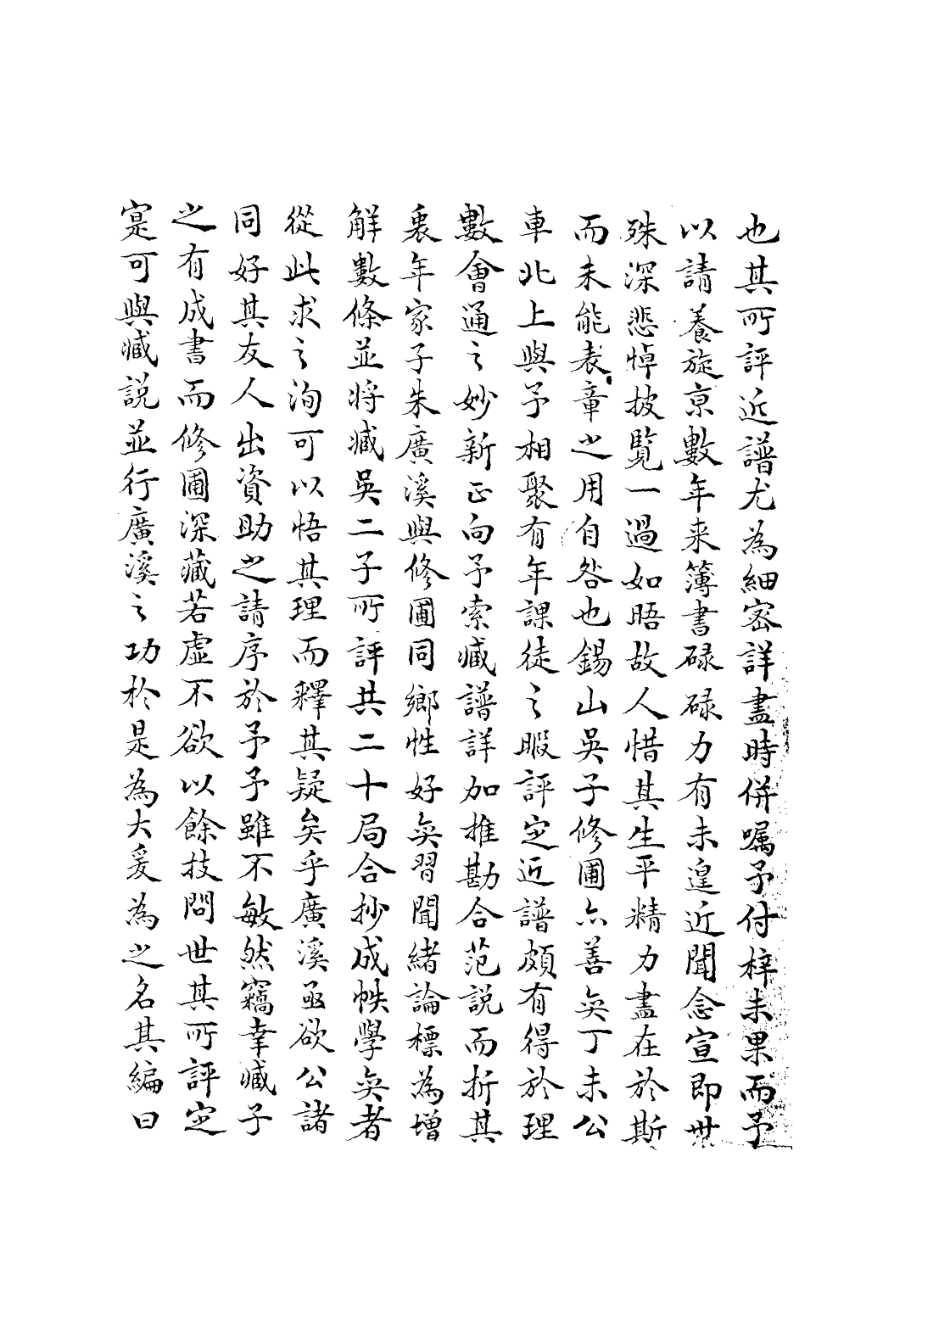 也其所評近譜尤為細密詳盡時併囑予付梓未果而予
以請養旋京數年来簿書碌碌力有未遑近聞念宣即世
殊深悲悼披覧一過如晤故人惜其生平精力盡在於斯
而未能表章之用自咎也錫山吳子修圃亦善奕丁未公
車北上與予相聚有年課徒之暇評定近譜頗有得於理
數會通之妙新正向予索臧譜詳加推勘合范説而折其
衷年家子朱廣溪與修圃同鄉性好奕習聞緒論標為增
解數條並将臧吳二子所評共二十局合抄成帙學奕者
從此求之洵可以悟其理而釋其疑矣乎廣溪亟欲公諸
同好其友人出資助之請序於予予雖不敏然竊幸臧子
之有成書而修圃深藏若虛不欲以餘技問世其所評定
寔可與臧説並行廣溪之功於是為大爰為之名其編曰